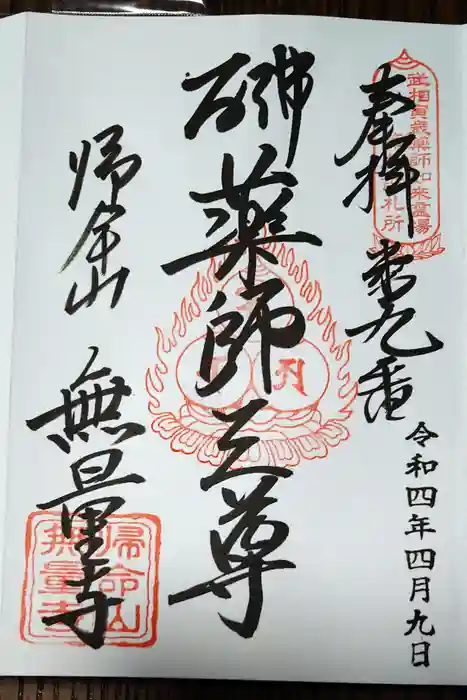 武相寅歳薬師如来霊場
札所
奉拝 第九番
令和四年四月九日
石佛薬師三尊
帰命山 無量寺
帰命山
無量寺